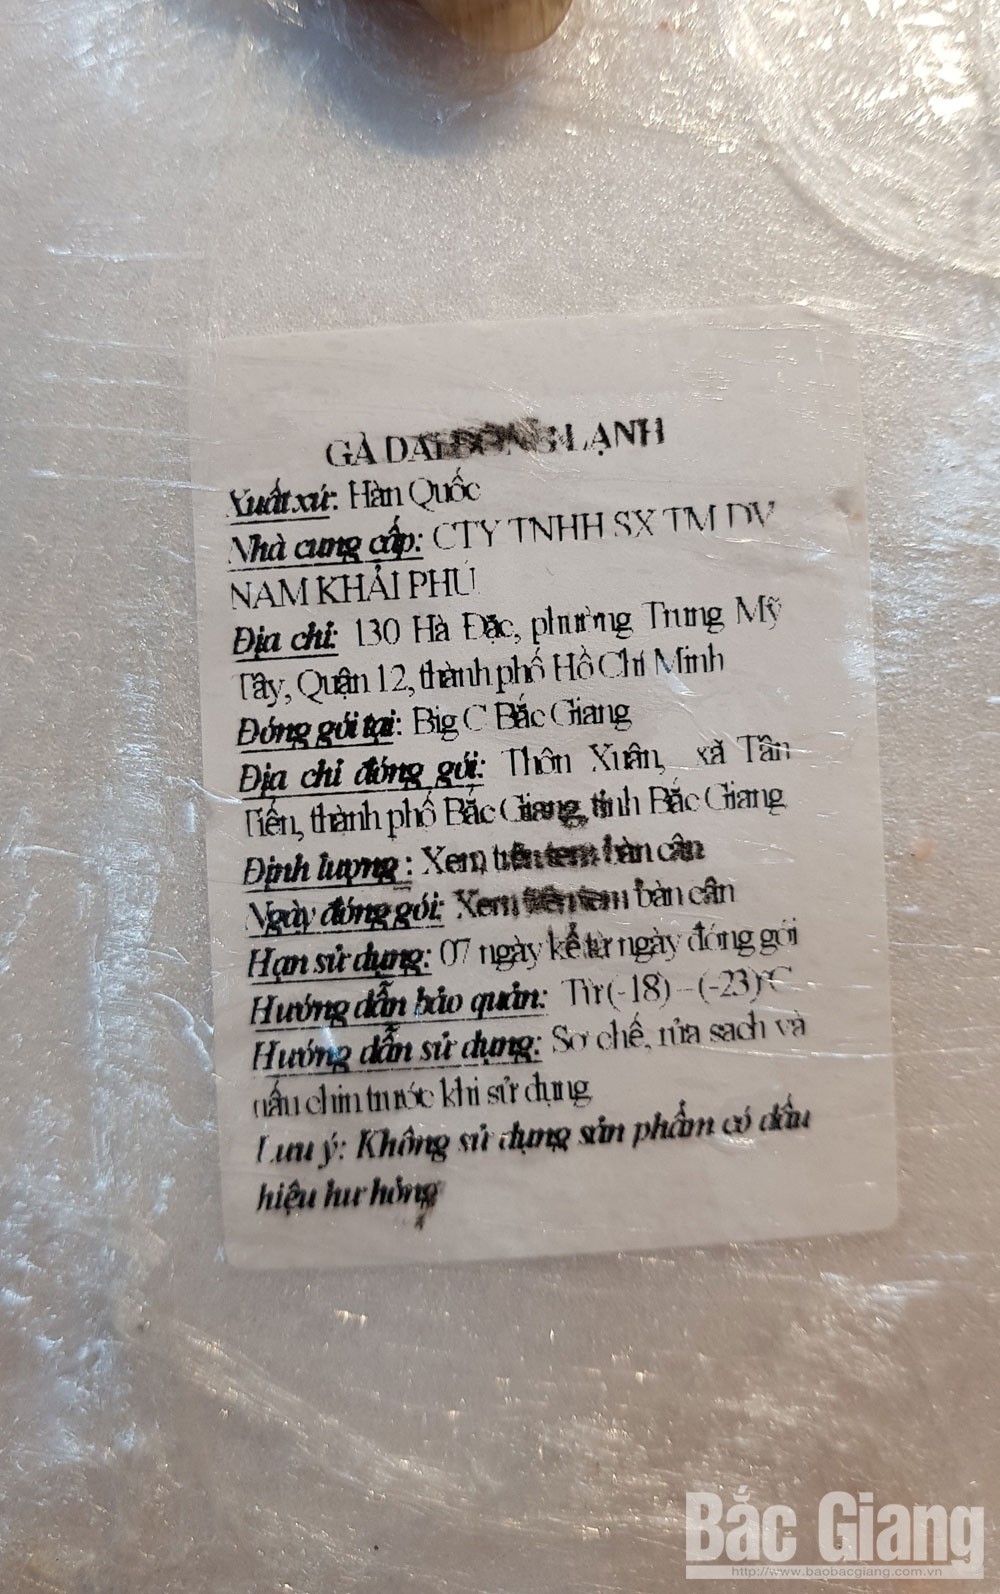 GÀ DAI ĐÔNG LẠNH
Xuất xứ: Hàn Quốc
Nhà cung cấp: CTY TNHH SX TM DV
NAM KHẢI PHÚ
Địa chỉ: 130 Hà Đặc, phường Trung Mỹ
Tây, Quận 12, thành phố Hồ Chí Minh
Đóng gói tại: Big C Bắc Giang
Địa chỉ đóng gói: Thôn Xuân, xã Tân
Tiến, thành phố Bắc Giang, tỉnh Bắc Giang
Định lượng : Xem trên tem bàn cân
Ngày đóng gói: Xem trên tem bàn cân
Hạn sử dụng: 07 ngày kể từ ngày đóng gói
Hướng dẫn bảo quản: Từ (-18) – (-23)°C
Hướng dẫn sử dụng: Sơ chế, rửa sạch và
nấu chín trước khi sử dụng
Lưu ý: Không sử dụng sản phẩm có dấu
hiệu hư hỏng
Bắc Giang
http://www.baobacgiang.com.vn